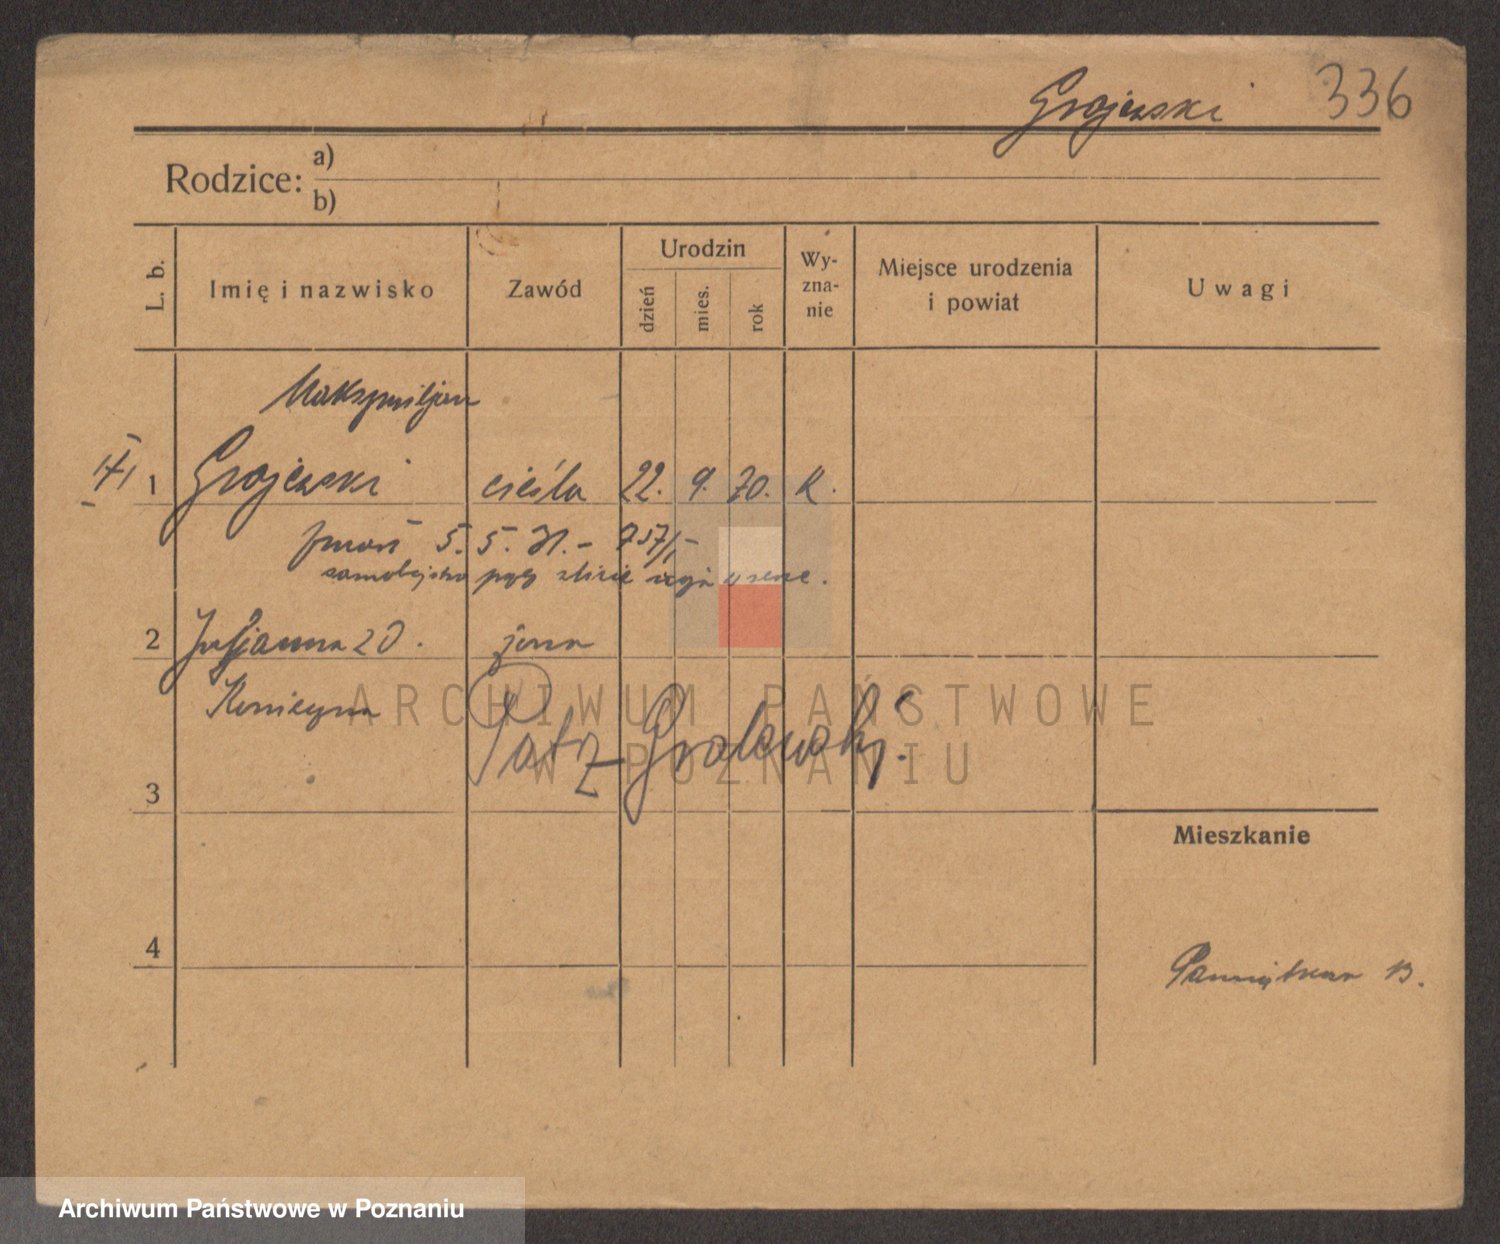 Grojewski 336
Rodzice: a)
b)
L. b. Imię i nazwisko Zawód Urodzin dzień mies. rok Wy-zna-nie Miejsce urodzenia i powiat Uwagi
Maksymiljan
1 Grojewski cieśla 22. 9. 70. K.
zmarł 5. 5. 31. - 757/
samobójstwo przez
2 Juljanna zD. żona
Patrz-Grolewski.
3
Mieszkanie
4
Pamiątkowa 13.
ARCHIWUM PAŃSTWOWE
W POZNANIU
Archiwum Państwowe w Poznaniu